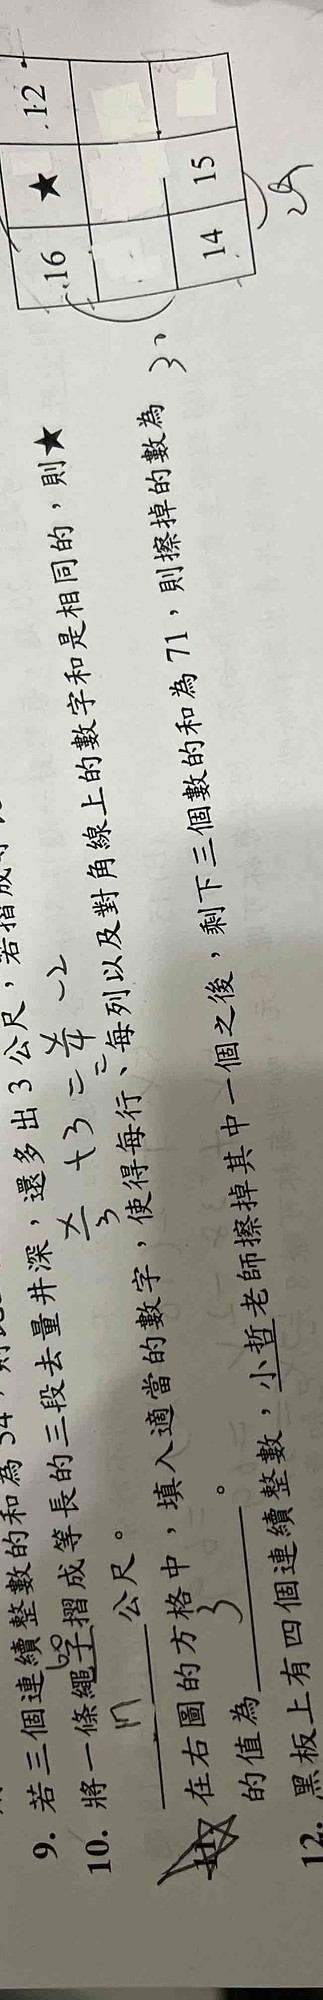 9. 若三個連續整數的和為54，則
10. 將一條繩子摺成等長的三段去量井深，還多出3公尺，若摺成
公尺。
11. 在右圖的方格中，填入適當的數字，使得每行、每列以及對角線上的數字和是相同的，則★
的值為＿＿＿＿。
12. 黑板上有四個連續整數，小哲老師擦掉其中一個之後，剩下三個數的和為71，則擦掉的數為
16 ★ 12
14 15
60
17
x/3 +3 = x/4 -2
3
29